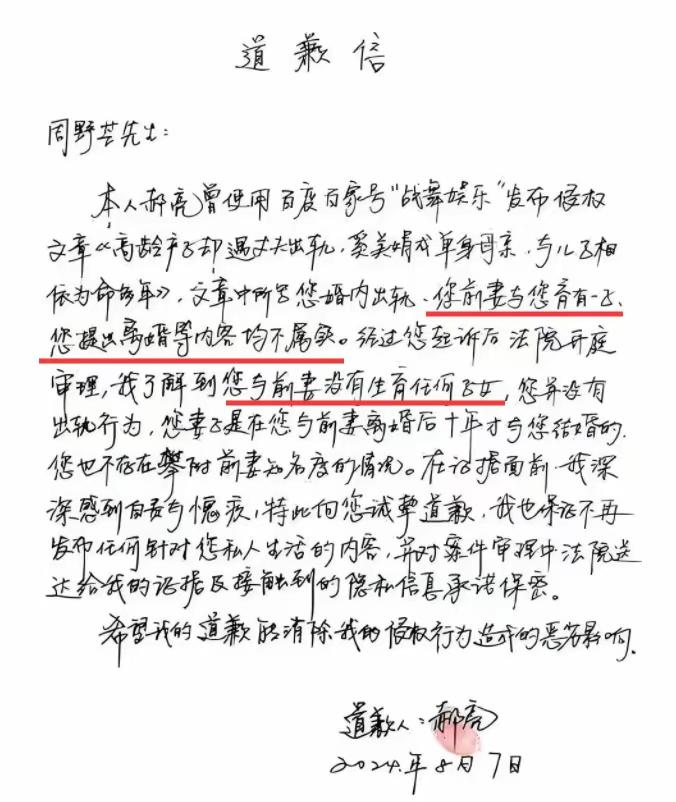 道歉信
周野芒先生:
本人郝亮曾使用百度百家号“战舞娱乐”发布侵权
文章《高龄产子却遇丈夫出轨,奚美娟成单身母亲,与儿子相
依为命多年》,文章中所写您婚内出轨、您前妻与您育有一子、
您提出离婚等内容均不属实。经过您起诉后法院开庭
审理,我了解到您与前妻没有生育任何子女,您并没有
出轨行为,您妻子是在您与前妻离婚后十年才与您结婚的,
您也不存在攀附前妻知名度的情况。在证据面前,我深
深感到自责与愧疚,特此向您诚挚道歉,我也保证不再
发布任何针对您私人生活的内容,并对案件审理中法院送
达给我的证据及接触到的隐私信息承诺保密。
希望我的道歉能消除我的侵权行为造成的恶劣影响.
道歉人:郝亮
2024.年8月7日